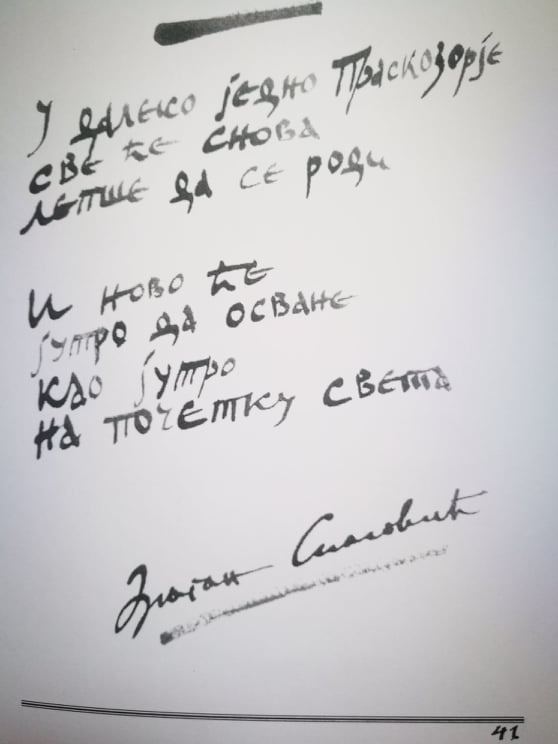 У далеко једно Праскозорје
све ће снова
лепше да се роди
И ново ће
јутро да осване
као јутро
на почетку света
41